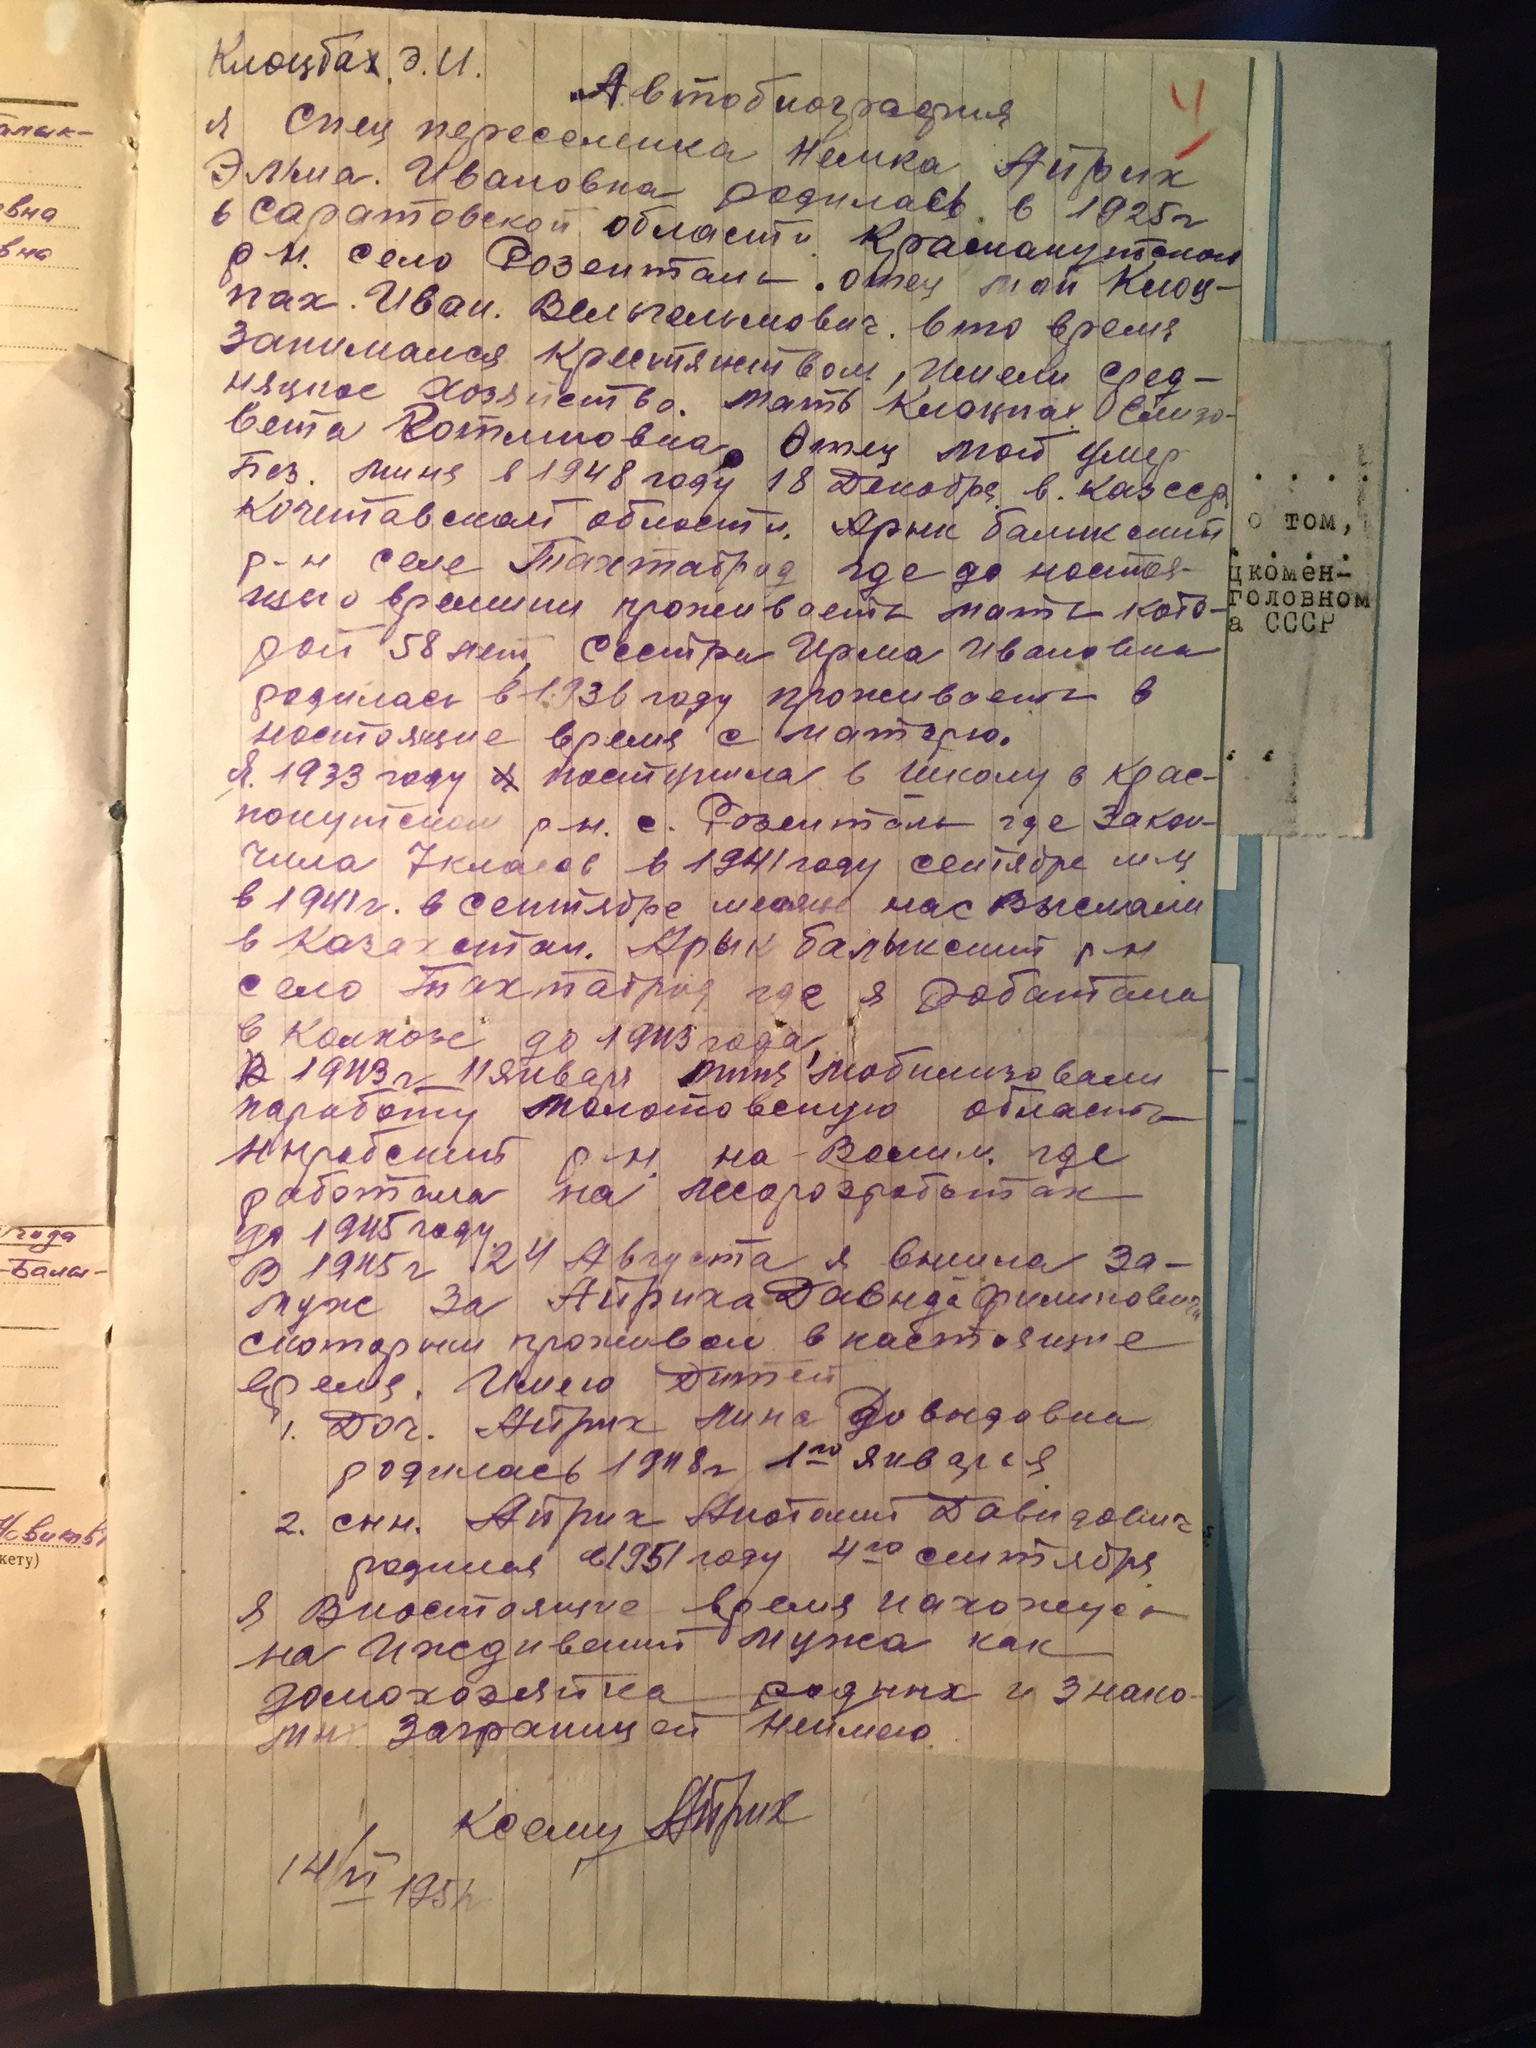 Клоцбах. Э. И.
Автобиография
4
я Спец переселенка Немка Айрих
Эльма. Ивановна родилась в 1925г
в Саратовской области Краснакутском
р-н. село Розенталь. отец мой Клоц-
пах. Иван. Вельгельмович. в то время
Занимался Крестянством, имели сред-
няцкое хозяйство. мать Клоцпах Елиза-
вета Готлиновна. Отец мой умер
без. миня в 1948 году 18 Декабря в. Казсср
Кочетавской области. Арык балыкский
р-н селе Тахтаброд где до настоя-
щего времини проживаеть мать кото-
рой 58 лет, сестра Ирма Ивановна
родилась в 1936 году проживаеть в
настоящие время с матерю.
Я. 1933 году поступила в школу в Крас-
нокутском р-н. с. Розенталь где Закон-
чила 7 класов в 1941 году сентябре м-ц
в 1941г. в сентябре месяце нас Выслали
в Казахстан. Арык балыкский р-н
село Тахтаброд где я Работала
в Колхозе до 1943 года,
В 1943г 11 января миня мобилизовали
наработу Молотовскую область
Ныробский р-н. на-Валим. где
работала на лесоразработках
до 1945 году.
В 1945г 24 Августа я вышла за-
муж за Айриха Давыда Филиповича
скоторым проживаю в настоящие
время. Имею Дитей
1. Доч. Айрих Лина Давыдовна
родилась 1948г 1го января
2. сын. Айрих Анотолий Давидович
родился в 1951 году 4го сентября
я Внастоящие время нахожусь
на Иждивений мужа как
домохозяйка родных и знако-
мых заграницей неимею.
К сему Айрих
14/VI 195
о том,
цкомен-
головном
а СССР
евна
вна
года
-Балы-
кету)